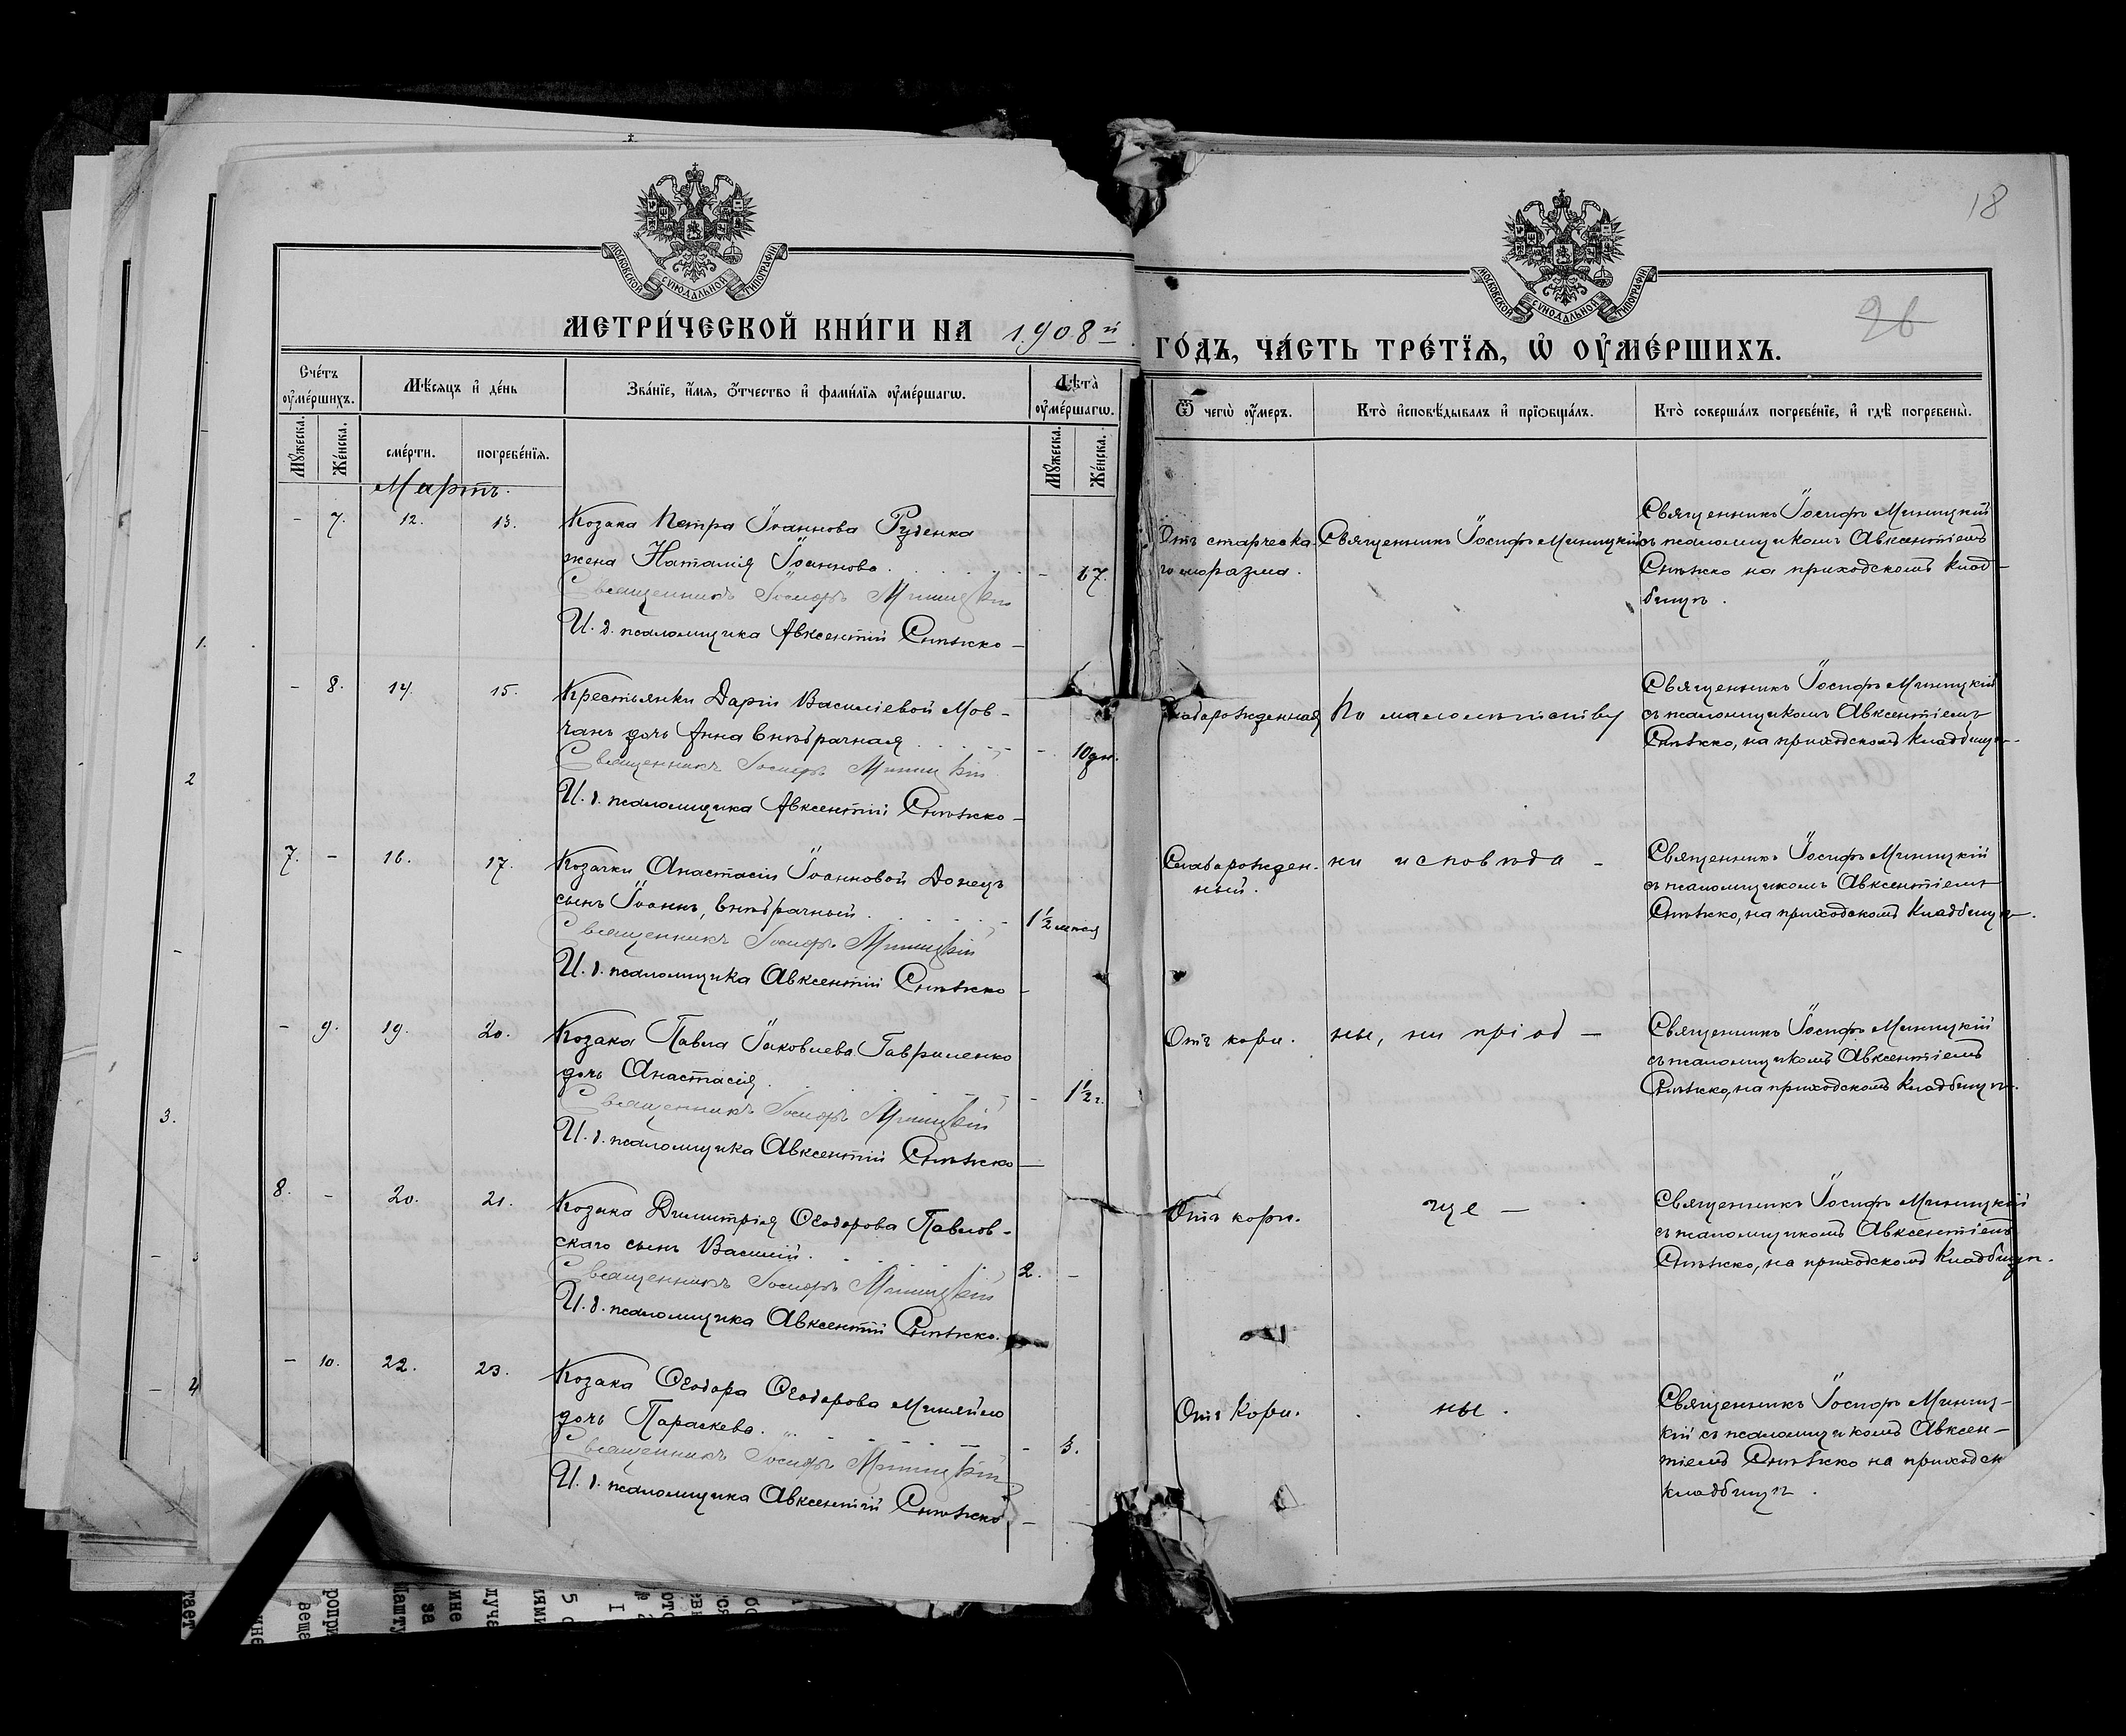 18
МОСКОВСКОЙ СѴНОДАЛЬНОЙ ТИПОГРАФІИ
МОСКОВСКОЙ СѴНОДАЛЬНОЙ ТИПОГРАФІИ
МЕТРИ́ЧЕСКОЙ КНИ́ГИ НА 1908й
ГО́ДЪ, ЧА́СТЬ ТРЕ́ТІѦ, Ѡ҆ ОУ҆МЕ́РШИХЪ.
Сче́тъ оу҆ме́ршихъ.
Мѣ́сѧцъ и҆ де́нь
Зва́нїе, и҆́мѧ, о҆́тчество и҆ фами́лїѧ оу҆ме́ршагѡ.
Лѣ̀та оу҆ме́ршагѡ.
Ѿ чегѡ̀ оу҆́меръ.
Кто̀ и҆сповѣ́дывалъ и҆ прїѡбща́лъ.
Кто̀ соверша́лъ погребе́нїе, и҆ гдѣ̀ погребены̀.
Мꙋ́жеска.
Же́нска.
сме́рти.
погребе́нїѧ.
Мꙋ́жеска.
Же́нска.
Мартъ.
- 7. 12. 13.
Козака Петра Іоаннова Руденка
жена Наталія Іоаннова
Священникъ Іосифъ Миницкій
И. д. псаломщика Авксентій Снѣжко
Отъ старческа-
го маразма.
Священникъ Іосифъ Миницкій
Священникъ Іосифъ Миницкій
съ псаломщикомъ Авксентіемъ
Снѣжко на приходскомъ клад-
бищѣ.
- 8. 14. 15.
Крестьянки Даріи Василіевой Мов-
чанъ дочь Анна внѣбрачная
- 10 дн.
Священникъ Іосифъ Миницкій
И. д. псаломщика Авксентій Снѣжко
Слаборожденная
По малолѣтству
Священникъ Іосифъ Миницкій
съ псаломщикомъ Авксентіемъ
Снѣжко, на приходскомъ кладбищѣ.
7. - 16. 17.
Козачки Анастасіи Іоанновой Донецъ
сынъ Іоаннъ, внѣбрачный.
1½ мѣсяц
Священникъ Іосифъ Миницкій
И. д. псаломщика Авксентій Снѣжко
Слаборожден-
ный.
ни исповѣда -
Священникъ Іосифъ Миницкій
съ псаломщикомъ Авксентіемъ
Снѣжко, на приходскомъ кладбищѣ.
- 9. 19. 20.
Козака Павла Іаковлева Гавриленко
дочь Анастасія
- 1½ г.
Священникъ Іосифъ Миницкій
И. д. псаломщика Авксентій Снѣжко
Отъ кори.
ны, ни пріоб -
Священникъ Іосифъ Миницкій
съ псаломщикомъ Авксентіемъ
Снѣжко, на приходскомъ кладбищѣ.
8. - 20. 21.
Козака Димитрія Ѳеодорова Павлов-
скаго сынъ Василій.
2. -
Священникъ Іосифъ Миницкій
И. д. псаломщика Авксентій Снѣжко.
Отъ кори.
ще -
Священникъ Іосифъ Миницкій
съ псаломщикомъ Авксентіемъ
Снѣжко, на приходскомъ кладбищѣ.
- 10. 22. 23.
Козака Ѳеодора Ѳеодорова Миняйло
дочь Параскева.
- 3.
Священникъ Іосифъ Миницкій
И. д. псаломщика Авксентій Снѣжко
Отъ кори.
ны.
Священникъ Іосифъ Миниц-
кій съ псаломщикомъ Авксен-
тіемъ Снѣжко на приходск
кладбищѣ.